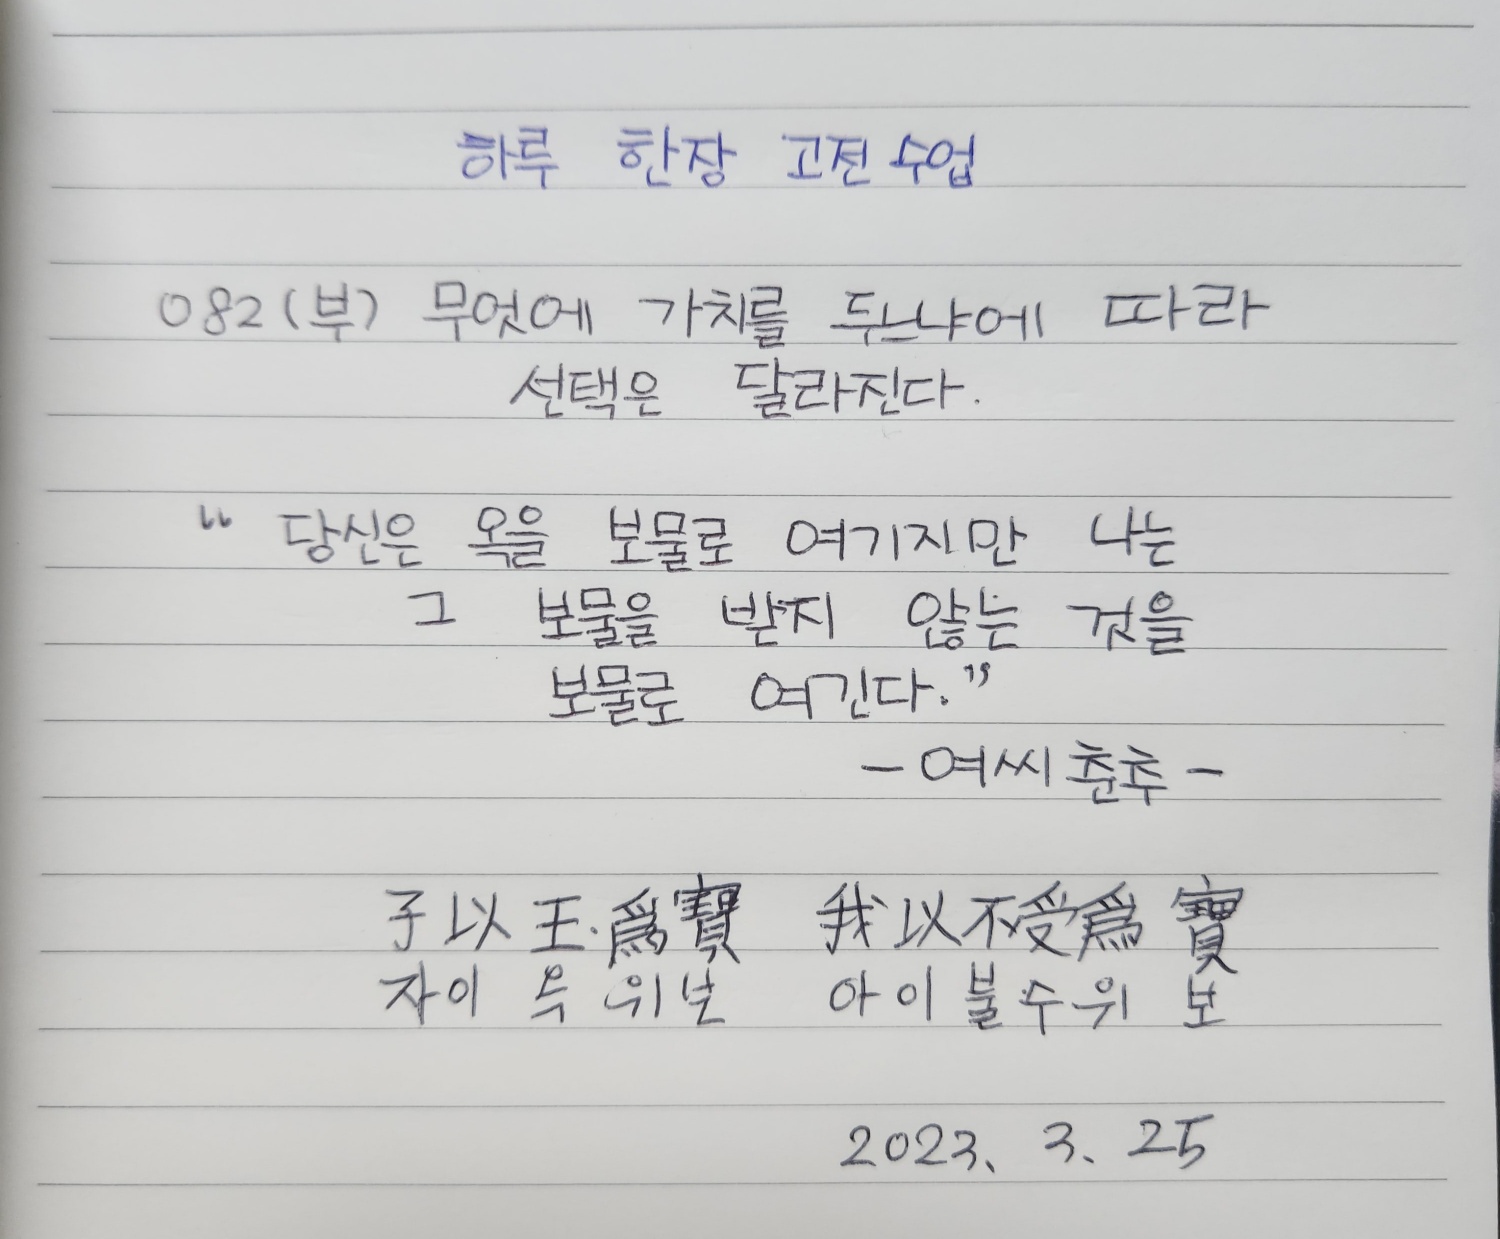 하루 한장 고전 수업
082(부) 무엇에 가치를 두느냐에 따라
선택은 달라진다.
“ 당신은 옥을 보물로 여기지만 나는
그 보물을 받지 않는 것을
보물로 여긴다.”
- 여씨춘추 -
子以玉爲寶 我以不受爲寶
자이옥위보 아이불수위보
2023. 3. 25